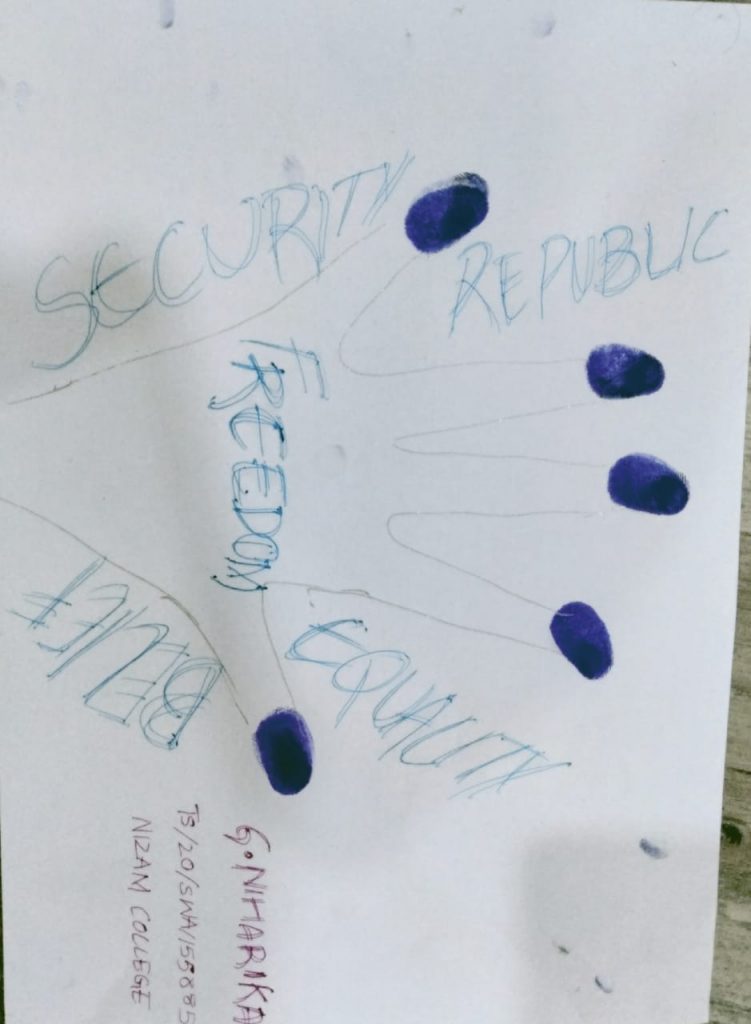 SECURITY
REPUBLIC
FREEDOM
EQUALITY
BELIEF
G. NIHARIKA
TS/20/SWA/155885
NIZAM COLLEGE